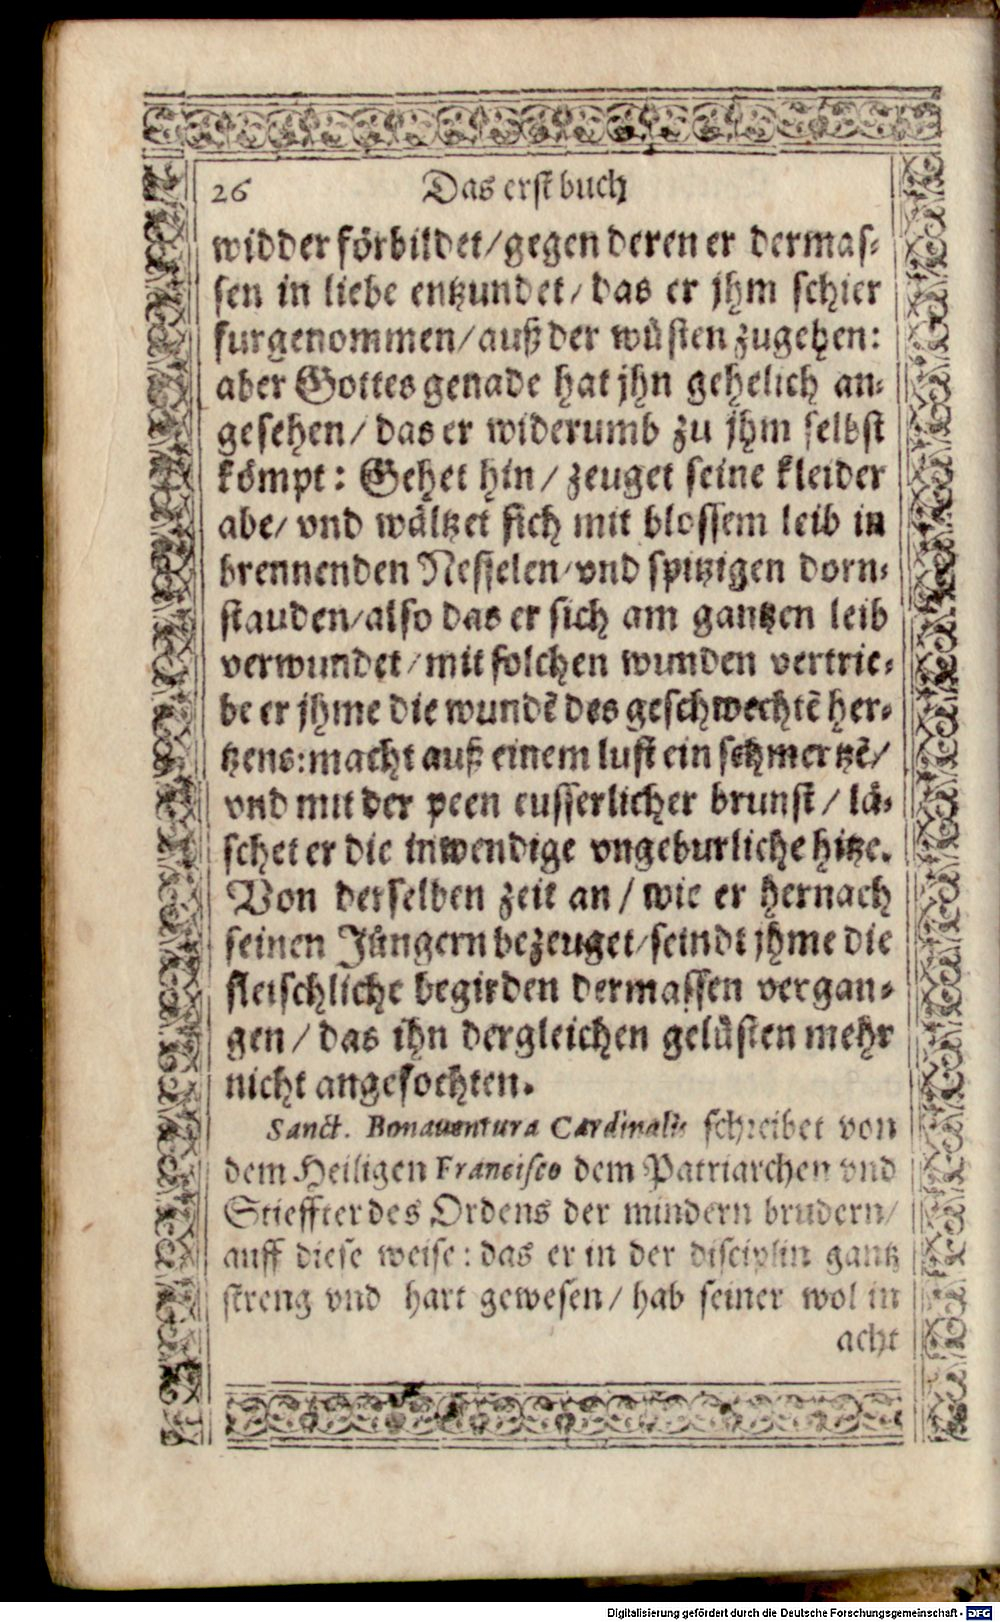 26 Das erst buch
widder förbildet/gegen deren er dermas-
sen in liebe entzundet/das er jhm schier
furgenommen/auß der wüsten zugehen:
aber Gottes genade hat jhn gehelich an-
gesehen/das er widerumb zu jhm selbst
kömpt: Gehet hin/zeuget seine kleider
abe/vnd wältzet sich mit blossem leib in
brennenden Nesselen/vnd spitzigen dorn-
stauden/also das er sich am gantzen leib
verwundet/mit solchen wunden vertrie-
be er jhme die wundē des geschwechtē her-
tzens:macht auß einem lust ein schmertzē/
vnd mit der peen eusserlicher brunst/lä-
schet er die inwendige vngeburliche hitze.
Von derselben zeit an/wie er hernach
seinen Jüngern bezeuget/seindt jhme die
fleischliche begirden dermassen vergan-
gen/das ihn dergleichen gelüsten mehr
nicht angefochten.
Sanct. Bonauentura Cardinalis schreibet von
dem Heiligen Francisco dem Patriarchen vnd
Stieffter des Ordens der mindern brudern/
auff diese weise: das er in der disciplin gantz
streng vnd hart gewesen/hab seiner wol in
acht
Digitalisierung gefördert durch die Deutsche Forschungsgemeinschaft - DFG